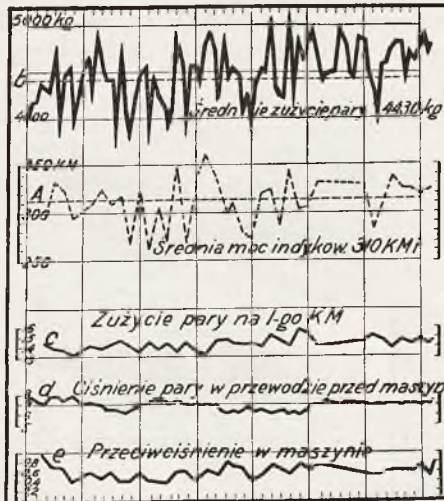 5000 kg
b
4000
Średnie zużycie pary 4430 kg
350 KM
A
300
Średnia moc indykow. 310 KMi
250
c Zużycie pary na 1-go KM
d Ciśnienie pary w przewodzie przed maszyn
e Przeciwciśnienie w maszynie